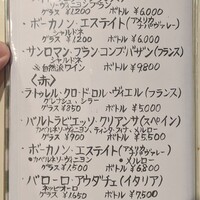 ソーヴィニヨンブラン
グラス ¥1200 ボトル ¥6,000
・ボーカノン・エステイト(アメリカ ナパヴァレー)
シャルドネ
グラス ¥1200 ボトル ¥6,000
・サンロマン・フラン・コンブ・バザン(フランス)
シャルドネ
※自然派ワイン ボトル ¥9800
〈赤〉
・ラトゥレル・クロ・ドゥル・ヴィエル(フランス)
グルナッシュ・シラー
グラス ¥850 ボトル ¥5000
・バルトラビエッソ・クリアンサ(スペイン)
カベルネソーヴィニヨン、ティンタ・フィナ、メルロー
グラス ¥900 ボトル ¥5,500
・ボーカノン・エステイト(アメリカ ナパヴァレー)
・カベルネソーヴィニヨン ・メルロー
グラス ¥1350 ボトル ¥6800
・バローロ・アウダチェ(イタリア)
ネッビオーロ
グラス ¥1650 ボトル ¥7500